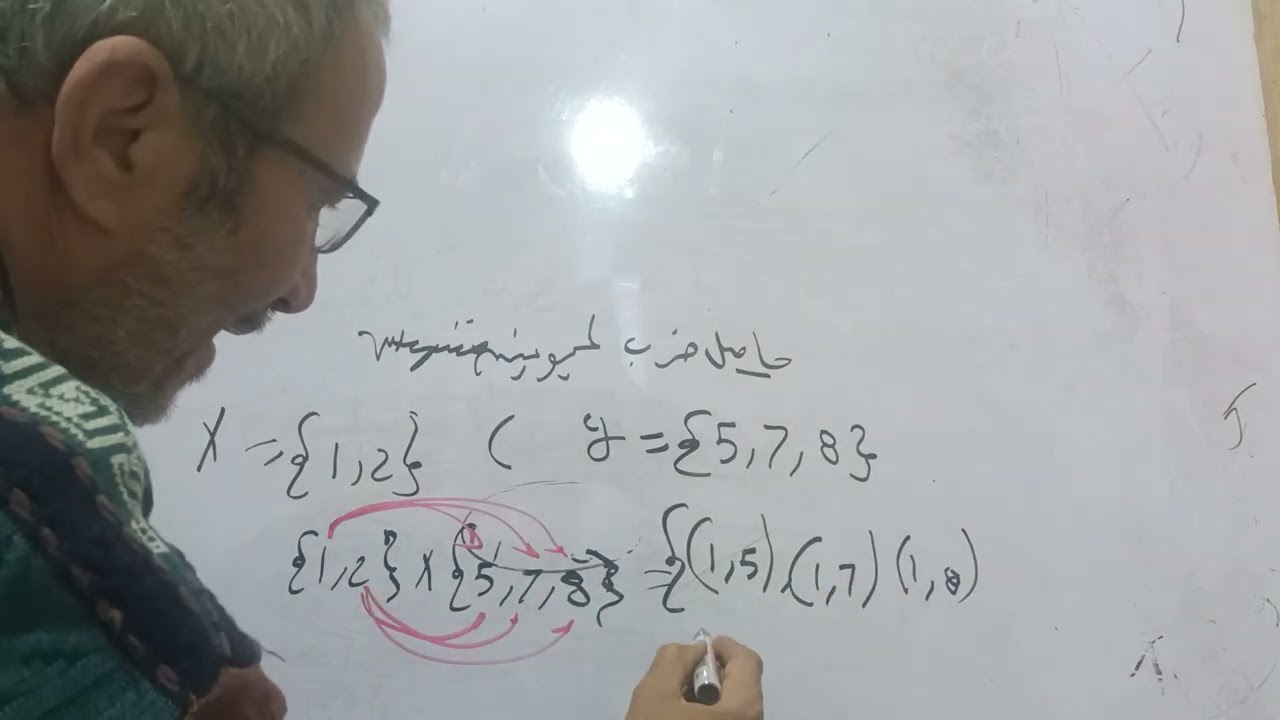 حاصل ضرب
X = {1,2} ( y = {5,7,8}
{1,2} x {5,7,8} = {(1,5),(1,7)(1,8)